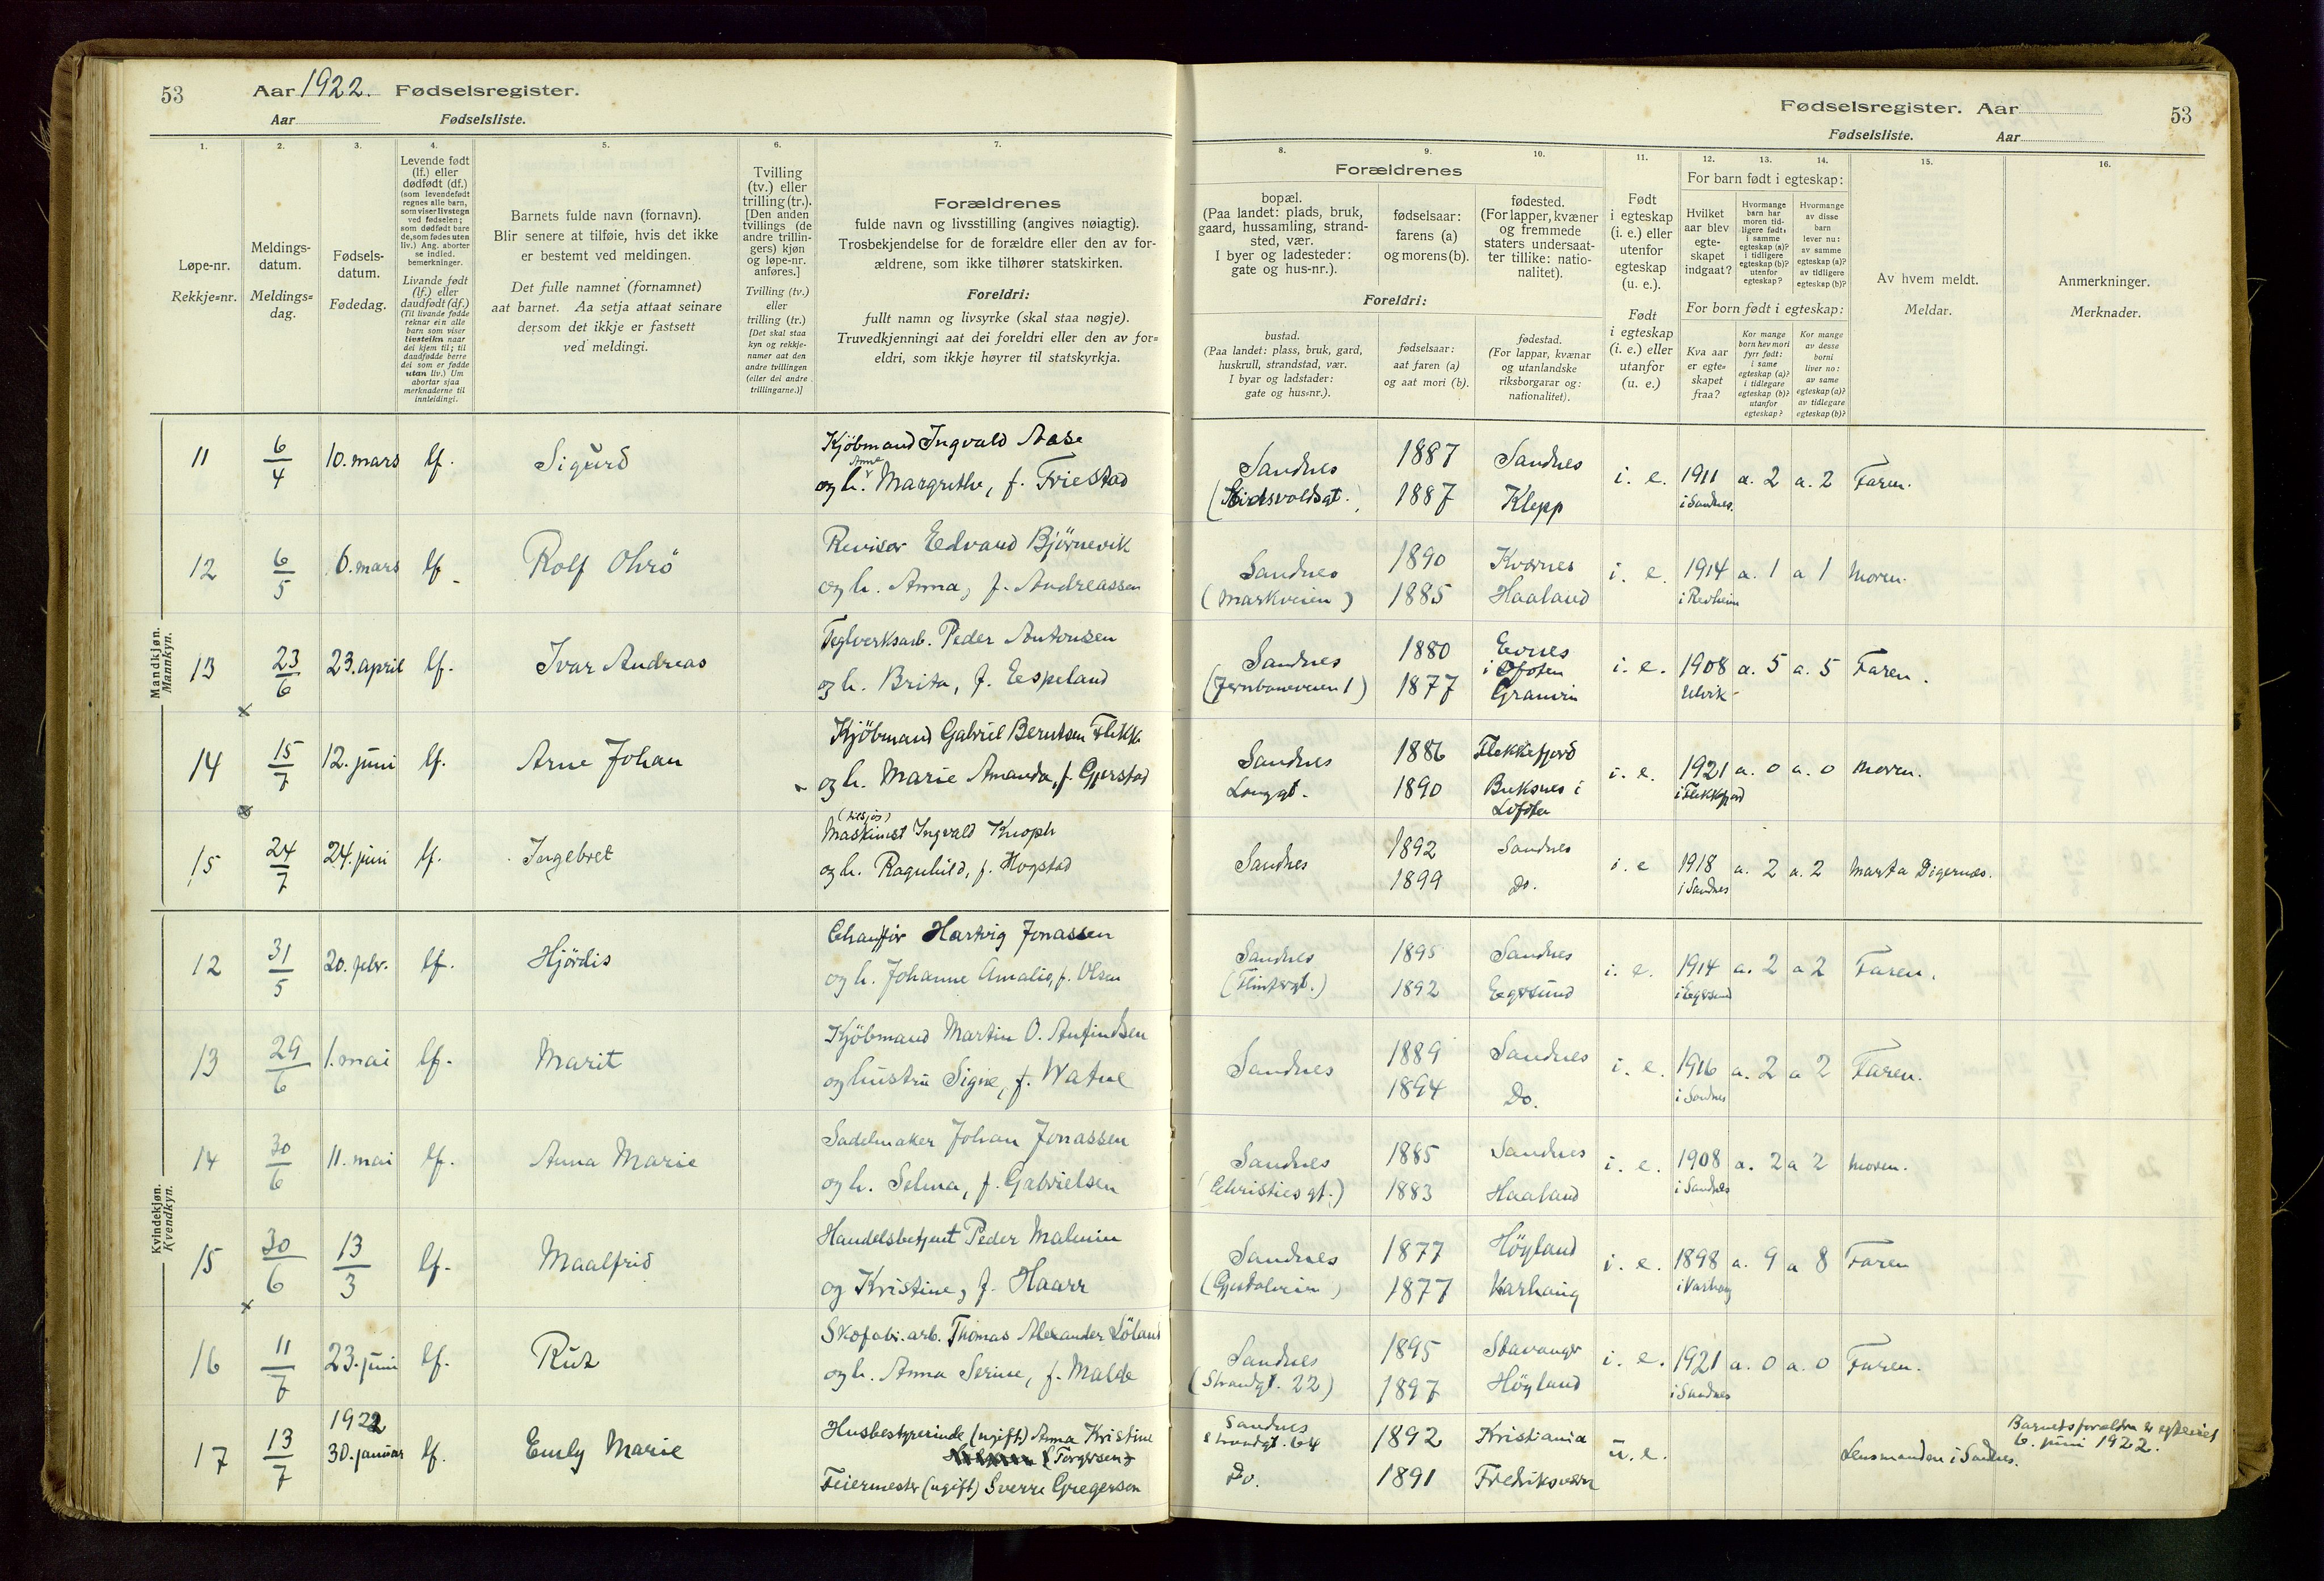 53 Aar 1922. Fødselsregister.
Aar Fødselsliste.
1. 2. 3. 4. 5. 6. 7.
Løpe-nr.
Rekkje=nr.
Meldings-
datum.
Meldings=
dag.
Fødsels-
datum.
Fødedag.
Levende født
(lf.) eller
dødfødt (df.)
(som levendefødt
regnes alle barn,
som viser livstegn
ved fødselen;
som dødfødt bare
de, som fødes uten
liv.) Ang. aborter
se indled.
bemerkninger.
Livande født
(lf.) eller
daudfødt (df.)
(Til livande fødde
reknar ein alle
barn som viser
livsteikn naar
dei kjem til; til
daudfødde berre
dei som er fødde
utan liv.) Um
abortar sjaa
merknaderne til
innleidingi.
Barnets fulde navn (fornavn).
Blir senere at tilføie, hvis det ikke
er bestemt ved meldingen.
Det fulle namnet (fornamnet)
aat barnet. Aa setja attaat seinare
dersom det ikkje er fastsett
ved meldingi.
Tvilling
(tv.) eller
trilling (tr.).
[Den anden
tvillings (de
andre trillin-
gers) kjøn
og løpe-nr.
anføres.]
Tvilling (tv.)
eller
trilling (tr.)
[Det skal staa
kyn og rekkje-
numer aat den
andre tvillingen
(eller dei andre
trillingarne.)]
Forældrenes
fulde navn og livsstilling (angives nøiagtig).
Trosbekjendelse for de forældre eller den av for-
ældrene, som ikke tilhører statskirken.
Foreldri:
fullt namn og livsyrke (skal staa nøgje).
Truvedkjenningi aat dei foreldri eller den av for=
eldri, som ikkje høyrer til statskyrkja.
Mandkjøn.
Mannkyn.
11 6/4 10. mars lf. Sigurd Kjöbmand Ingvald Aase
og h. Anne Margrethe, f. Friestad
12 6/5 6. mars lf. Rolf Ohrö Revisor Edvard Björnevik
og h. Anna, f. Andreassen
13 23/6 23. april lf. Ivar Andreas Teglverksarb. Peder Antonsen
og h. Brita, f. Espeland
14 15/7 12. juni lf. Arne Johan Kjöbmand Gabriel Berntsen Flikk
og h. Marie Amanda, f. Gjerstad
15 24/7 24. juni lf. Ingebret (tilsjös)
Maskinist Ingvald Knoph
og h. Ragnhild, f. Hogstad
Kvindekjøn.
Kvendkyn.
12 31/5 20. febr. lf. Hjördis Chauffør Hartvig Jonassen
og h. Johanne Amalie, f. Olsen
13 29/6 1. mai lf. Marit Kjöbmand Martin O. Anfindsen
og hustru Signe, f. Watne
14 30/6 11. mai lf. Anna Marie Sadelmaker Johan Jonassen
og h. Selma, f. Gabrielsen
15 30/6 13/3 lf. Maalfrid Handelsbetjent Peder Malmin
og Kristine, f. Haarr
16 11/7 23. juni lf. Rut Skofabr. arb. Thomas Alexander Löland
og h. Anna Serine, f. Malde
17 13/7 1922
30. januar lf. Emly Marie Husbestyrerinde (ugift) Anna Kristine
Torgersen
Feiermester (ugift) Sverre Gregersen
Fødselsregister. Aar 53
Fødselsliste. Aar
8. 9. 10. 11. 12. 13. 14. 15. 16.
Forældrenes
bopæl.
(Paa landet: plads, bruk,
gaard, hussamling, strand-
sted, vær.
I byer og ladesteder:
gate og hus-nr.).
fødselsaar:
farens (a)
og morens (b).
fødested.
(For lapper, kvæner
og fremmede
staters undersaat-
ter tillike: natio-
nalitet).
Foreldri:
bustad.
(Paa landet: plass, bruk, gard,
huskrull, strandstad, vær.
I byar og ladstader:
gate og hus=nr.).
fødselsaar:
aat faren (a)
og aat mori (b).
fødestad.
(For lappar, kvænar
og utanlandske
riksborgarar og:
nationalitet).
Født
i egteskap
(i. e.) eller
utenfor
egteskap
(u. e.).
Født
i egteskap
(i. e.) eller
utanfor
(u. e.)
For barn født i egteskap:
Hvilket
aar blev
egte-
skapet
indgaat?
Hvormange
barn har
moren tid-
ligere født:
i samme
egteskap (a)?
i tidligere
egteskap (b)?
utenfor
egteskap?
Hvormange
av disse
barn
lever nu:
av samme
egteskap (a)?
av tidligere
egteskap (b)?
For born født i egteskap:
Kva aar
er egte=
skapet
fraa?
Kor mange
born hev mori
fyrr født:
i same
egteskap (a)?
i tidlegare
egteskap (b)?
utanfor
egteskap?
Kor mange
av desse
borni
liver no:
av same
egteskap (a)?
av tidlegare
egteskap (b)?
Av hvem meldt.
Meldar.
Anmerkninger.
Merknader.
Sandnes 1887 Sandnes i. e. 1911 a. 2 a. 2 Faren.
(Eidsvoldsgt.) 1887 Klepp i Sandnes.
Sandnes 1890 Kvernes i. e. 1914 a. 1 a 1 Moren.
(Markveien) 1885 Haaland i Revheim
Sandnes 1880 Evnes
i Ofoten i. e. 1908 a. 5 a. 5 Faren.
(Jernbaneveien 1) 1877 Granvin Ulvik
Sandnes 1886 Flekkefjord i. e. 1921 a. 0 a. 0 Moren.
Langgt. 1890 Buksnes i
Lofoten i Flekkefjord
Sandnes 1892 Sandnes i. e 1918 a. 2 a. 2 Marta Digernes.
1899 Do. i Sandnes
Sandnes 1895 Sandnes i. e. 1914 a. 2 a 2 Faren.
(Flintegt.) 1892 Egersund i Egersund
Sandnes 1889 Sandnes i. e. 1916 a. 2 a 2 Faren.
1894 Do. i Sandnes
Sandnes 1885 Sandnes i. e. 1908 a. 2 a 2 Moren.
(Christies gt.) 1883 Haaland i Sandnes
Sandnes 1877 Höyland i. e. 1898 a. 9 a 8 Faren
(Gjesdalveien) 1877 Varhaug i Varhaug
Sandnes 1895 Stavanger i. e. 1921 a. 0 a. 0 Faren.
(Strandgt. 22) 1897 Höyland i Sandnes
Sandnes
Strandgt. 64 1892 Kristiania u. e. Lensmanden i Sandnes. Barnets forældre er egteviet
6. juni 1922.
Do. 1891 Fredriksværn